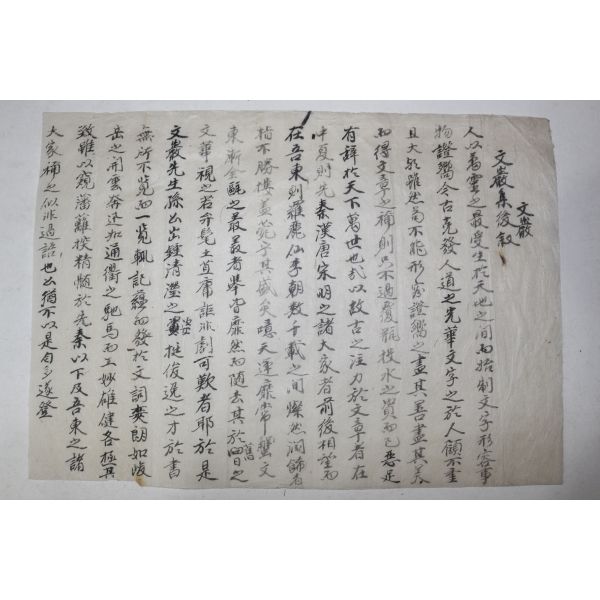 文巖
文巖集後叙
人以萬靈之最受生於天地之間而始制文字形容事
物證嚮今古克發人道之光華文字之於人顧不重
且大歟雖然苟不能形容證嚮之盡其善盡其美
而得文章之稱則只不過覆瓿投水之資而已惡足
有辭於天下萬世也哉以故古之注力於文章者在
中夏則先秦漢唐宋明之諸大家者前後相望而
在吾東則羅麗仙李朝數千載之間燦然潤餙者
指不勝摟盖菀乎其盛矣噫天運靡常蠻文
東漸全甌之最㝡者擧皆靡然而隨去其於舊日之
文華視之若弁髦土苴庸詎非劇可歎者耶於是
文巖先生孫公出鍾清瀅之姿挺俊逸之才於書
無所不覽而一覽輒記蘊而發於文詞爽朗如峻
岳之開雲奔迅如通衢之馳馬而工妙雄健各極其
致雖以窺藩籬挨精髓於先秦以下及吾東之諸
大家稱之似非過語也公猶不以是自多遂登